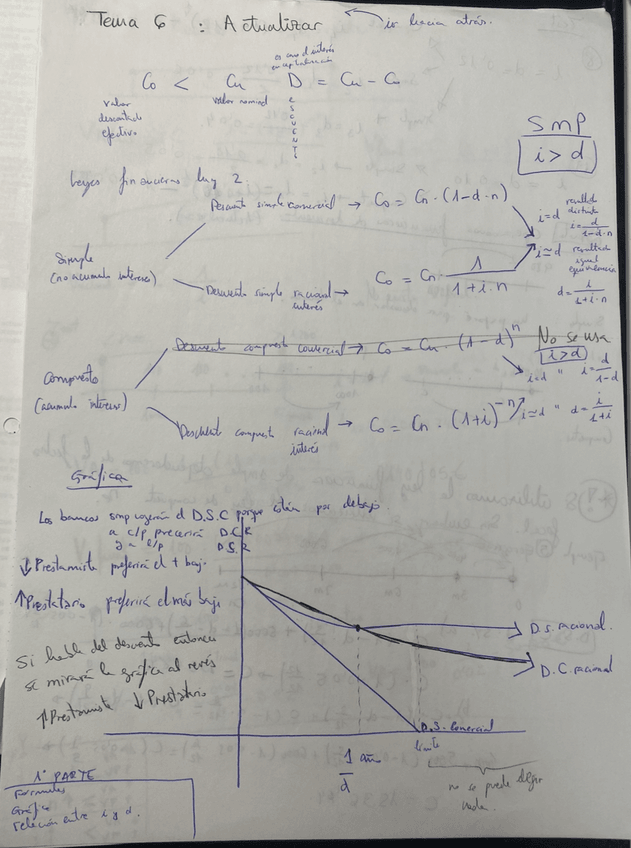 Tema 6 : Actualizar ← ir hacia atrás.
es como el interés
en capitalización
Co < Cn D = Cn - Co
valor descontado efectivo
valor nominal
ESCUENTO
SMP
i > d
Leyes financieras hay 2.
Descuento simple comercial → Co = Cn · (1-d·n)
i=d resultado distinto i = d/(1-d·n)
Simple
(no acumula intereses)
i≃d resultado igual equivalencia d = i/(1+i·n)
Descuento simple racional → Co = Cn · 1/(1+i·n)
interés
Descuento compuesto comercial → Co = Cn · (1-d)^n No se usa
i > d
i=d " i = d/(1-d)
Compuesto
(acumula intereses)
Descuento compuesto racional → Co = Cn · (1+i)^-n i≃d " d = i/(1+i)
interés
Gráfica
Los bancos smp cogerán el D.S.C porque están por debajo.
a c/p D.C.R
y a l/p D.S.R
↓ Prestamista preferirá el + bajo
↑ Prestatario preferirá el más bajo
Si habla del descuento entonces
se mirará la gráfica al revés
↑ Prestamista ↓ Prestatario
D.S. racional.
D.C. racional
D.S. Comercial
límite
1 año
1/d
no se puede
1ª PARTE
Formulas
Gráfica
relación entre i y d.